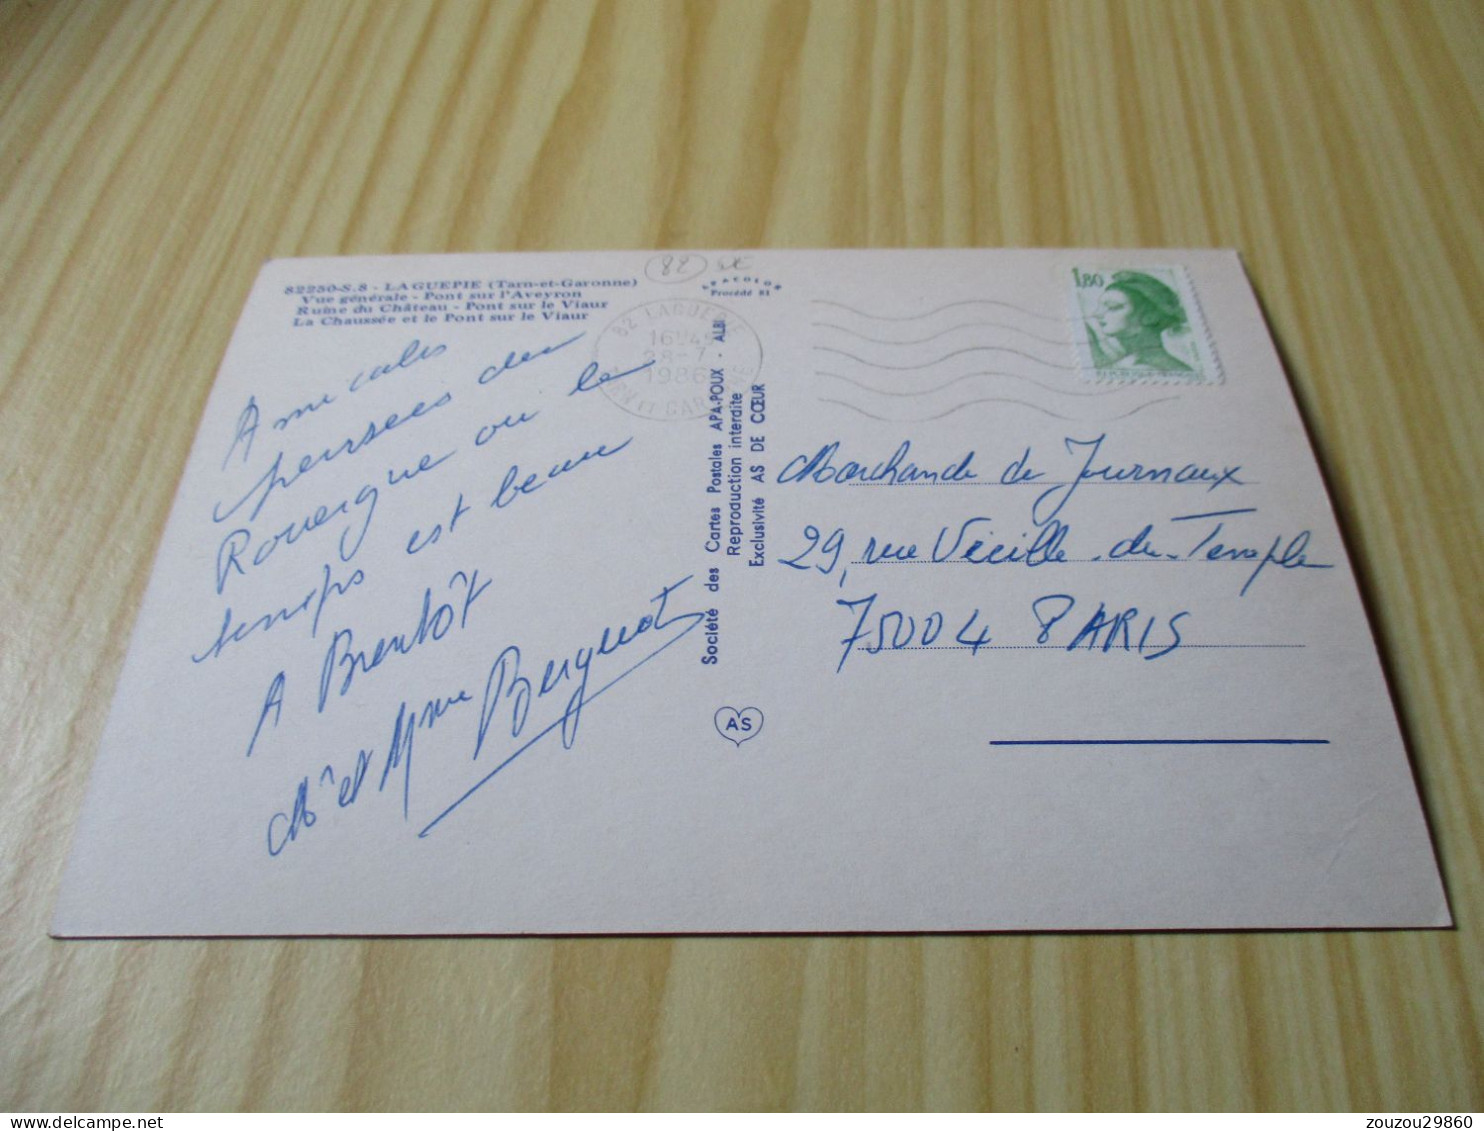 82250-S.8 - LAGUEPIE (Tarn-et-Garonne)
Vue générale - Pont sur l'Aveyron
Ruine du Château - Pont sur le Viaur
La Chaussée et le Pont sur le Viaur
82
APACOLOR
Procédé 81
82 LAGUEPIE
16H45
28-7
1986
TARN ET GARONNE
1,80
Amicales
pensées du
Rouergue ou le
temps est beau
A Bientôt
Mr et Mme Berguot
Société des Cartes Postales APA-POUX - ALBI
Reproduction interdite
Exclusivité AS DE CŒUR
AS
Marchande de Journaux
29, rue Vieille-du-Temple
75004 PARIS
zouzou29860